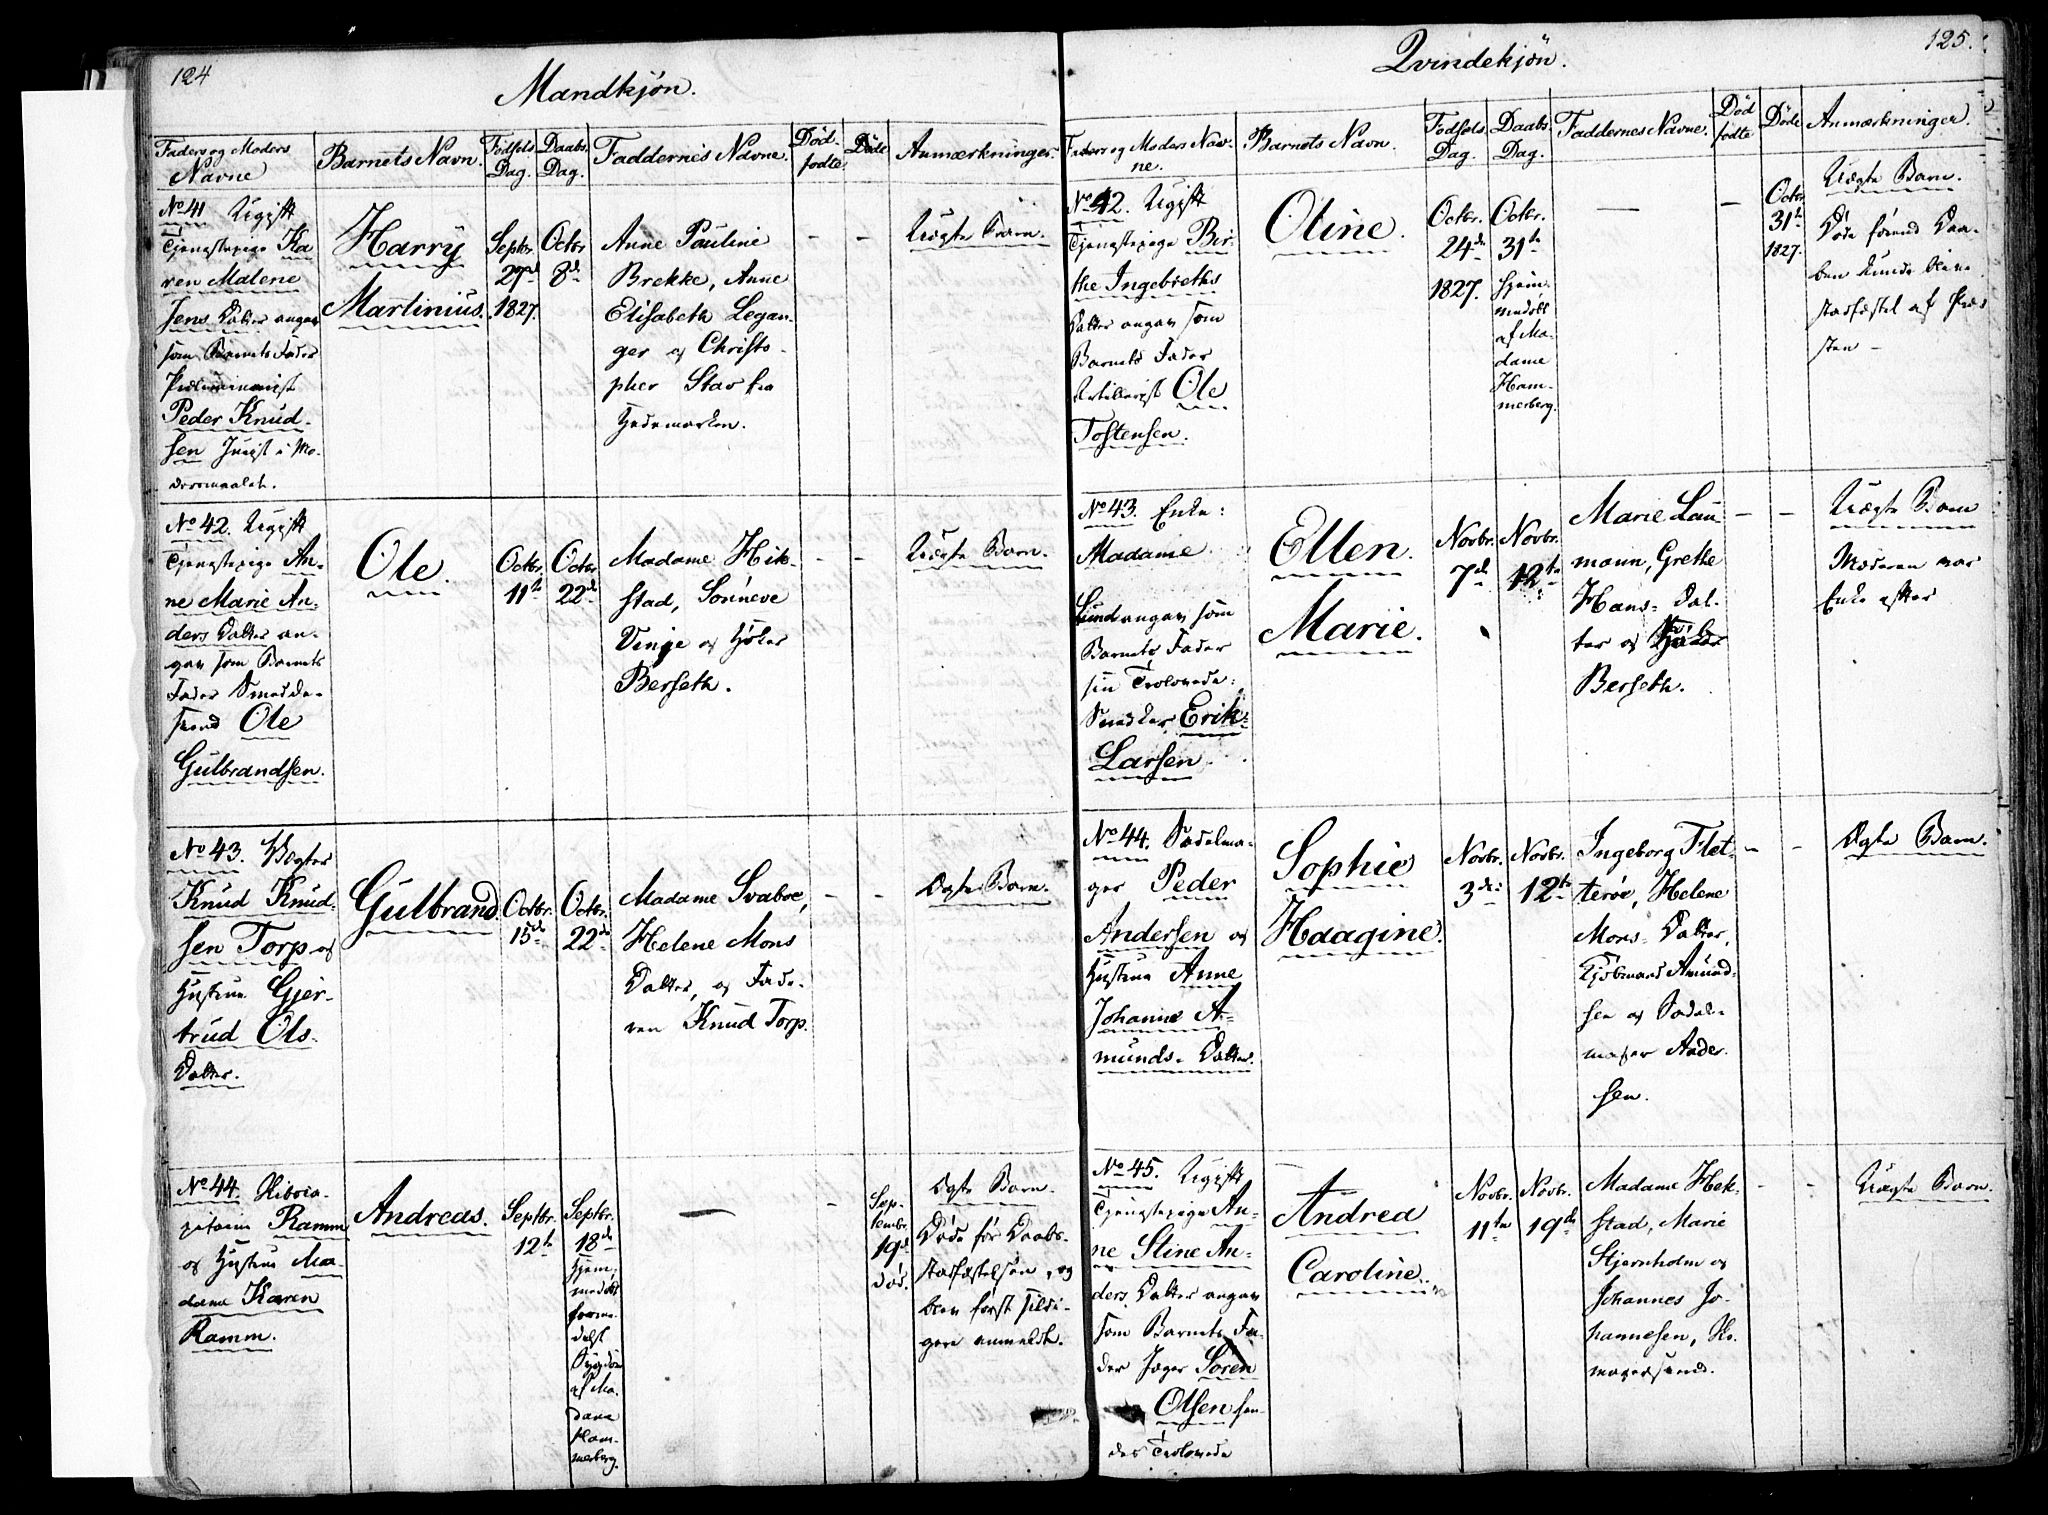 124
Mandkjøn.
Faders og Moders
Navne
Barnets Navn.
Fødsels
Dag.
Daabs
Dag.
Faddernes Navne.
Død-
fødte.
Døde
Anmærkninger.
No 41 Ugift
Tjenestepige Ka
ren Malene
Jens Datter angav
som Barnets Fader
Peder Knud-
sen
Harry
Martinius.
Septbr.
27de
1827.
Octbr
8de
Anne Pauline
Brekke, Anne
Elisabeth Legan-
ger og Christo-
pher Stav fra
Hedemarken.
– –
Uægte Barn.
No 42. Ugift
Tjenestepige An-
ne Marie An-
ders Datter an-
gav som Barnets
Fader Smedde-
svend Ole
Gulbrandsen.
Ole.
Octbr.
11te
Octbr.
22de
Madame Hek-
stad, Sønneve
Vinje og Høker
Berseth.
– –
Uægte Barn.
No 43. Vægter
Knud Knud-
sen Torp og
Hustrue Gjer-
trud Ols-
Datter.
Gulbrand
Octbr.
15de
Octbr.
22de
Madame Svaboe,
Helene Mons
Datter, og Fade-
ren Knud Torp.
– –
Ægte Barn.
No 44.
Ramm
og Hustrue Ma-
dame Karen
Ramm.
Andreas.
Septbr.
12te
Septbr.
18de
Hjem-
medøbt
forme-
delst
Sygdom
af Ma-
dame
Ham-
merberg.
—
–
Sep-
tembr.
19de
død.
Ægte Barn.
Døde før Daabs-
stadfæstelsen, og
blev først sildi-
gere anmeldt.
Qvindekjøn.
125.
Faders og Moders Nav-
ne.
Barnets Navn.
Fødsels
Dag.
Daabs
Dag.
Faddernes Navne.
Død
fødte
Døde
Anmærkninger.
No 42. Ugift
Tjenestepige Ber-
the Ingebreths
Datter angav som
Barnets Fader
Artillerist Ole
Tostensen.
Oline.
Octbr.
24de
1827.
Octbr.
31te
Hjem-
medøbt
af Ma-
dame
Ham-
merberg.
—
–
Octbr.
31te
1827.
Uægte Barn.
Døde førend Daa-
ben kunde blive
stadfæstet af Præs
ten –
No 43. Enke-
Madame
Lund angav som
Barnets Fader
sin Trolovede
Snedker Erik
Larsen.
Ellen
Marie.
Novbr.
7de
Novbr.
12te
Marie Lau
mann, Grethe
Hans- Dat-
ter og
Berseth.
– –
Uægte Barn
Moderen var
Enke efter
No 44. Sadelma-
ger Peder
Andersen og
Hustrue Anne
Johanne A-
munds- Datter.
Sophie
Haagine.
Novbr.
3die
Novbr.
12te
Ingeborg Flet-
terøe, Helene
Mons- Datter,
Kjøbmand Amund-
sen og Sadel-
mager Ander-
sen.
– –
Ægte Barn.
No 45. Ugift
Tjenestepige An-
ne Stine An-
ders. Datter angav
som Barnets Fa-
der Jæger Søren
Olsen hen-
des Trolovede
Andrea
Caroline.
Novbr.
11te
Novbr.
19de
Madame Hek-
stad, Marie
Stjernholm og
Johannes Jo-
hannesen, Sko-
magersvend.
– –
Uægte Barn.